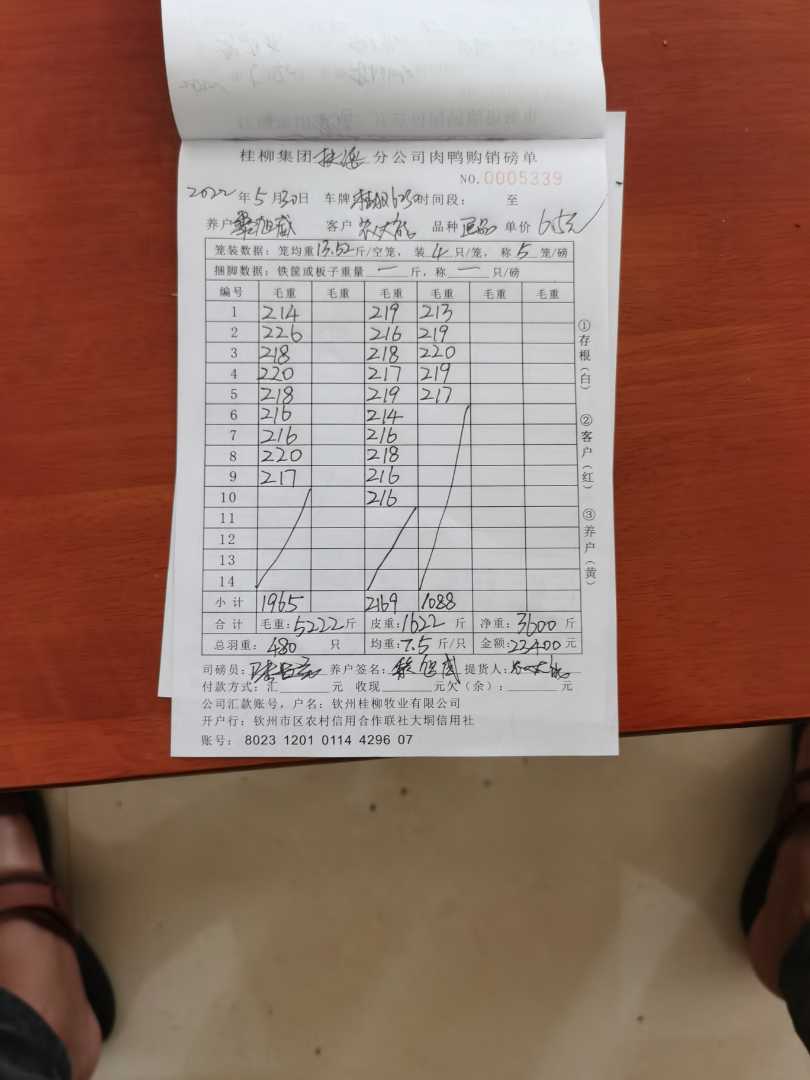 桂柳集团 分公司肉鸭购销磅单
NO.0005339
2022年5月30日 车牌 时间段: 至
养户 旭威 客户 农 品种 单价
笼装数据: 笼均重13.52斤/空笼, 装4只/笼, 称5笼/磅
捆脚数据: 铁筐或板子重量一斤, 称一只/磅
编号 毛重 毛重 毛重 毛重 毛重 毛重
1 214 219 213
2 226 216 219
3 218 218 220
4 220 217 219
5 218 219 217
6 216 214
7 216 216
8 220 218
9 217 216
10 216
11
12
13
14
小计 1965 2169 1088
合计 毛重:5222斤 皮重:1622斤 净重:3600斤
总羽重: 480 只 均重:7.5斤/只 金额:23400元
司磅员: 养户签名: 旭威 提货人:
付款方式: 汇 元 收现 元欠(余): 元
公司汇款账号, 户名: 钦州桂柳牧业有限公司
开户行: 钦州市区农村信用合作联社大垌信用社
账号: 8023 1201 0114 4296 07
①存根(白) ②客户(红) ③养户(黄)